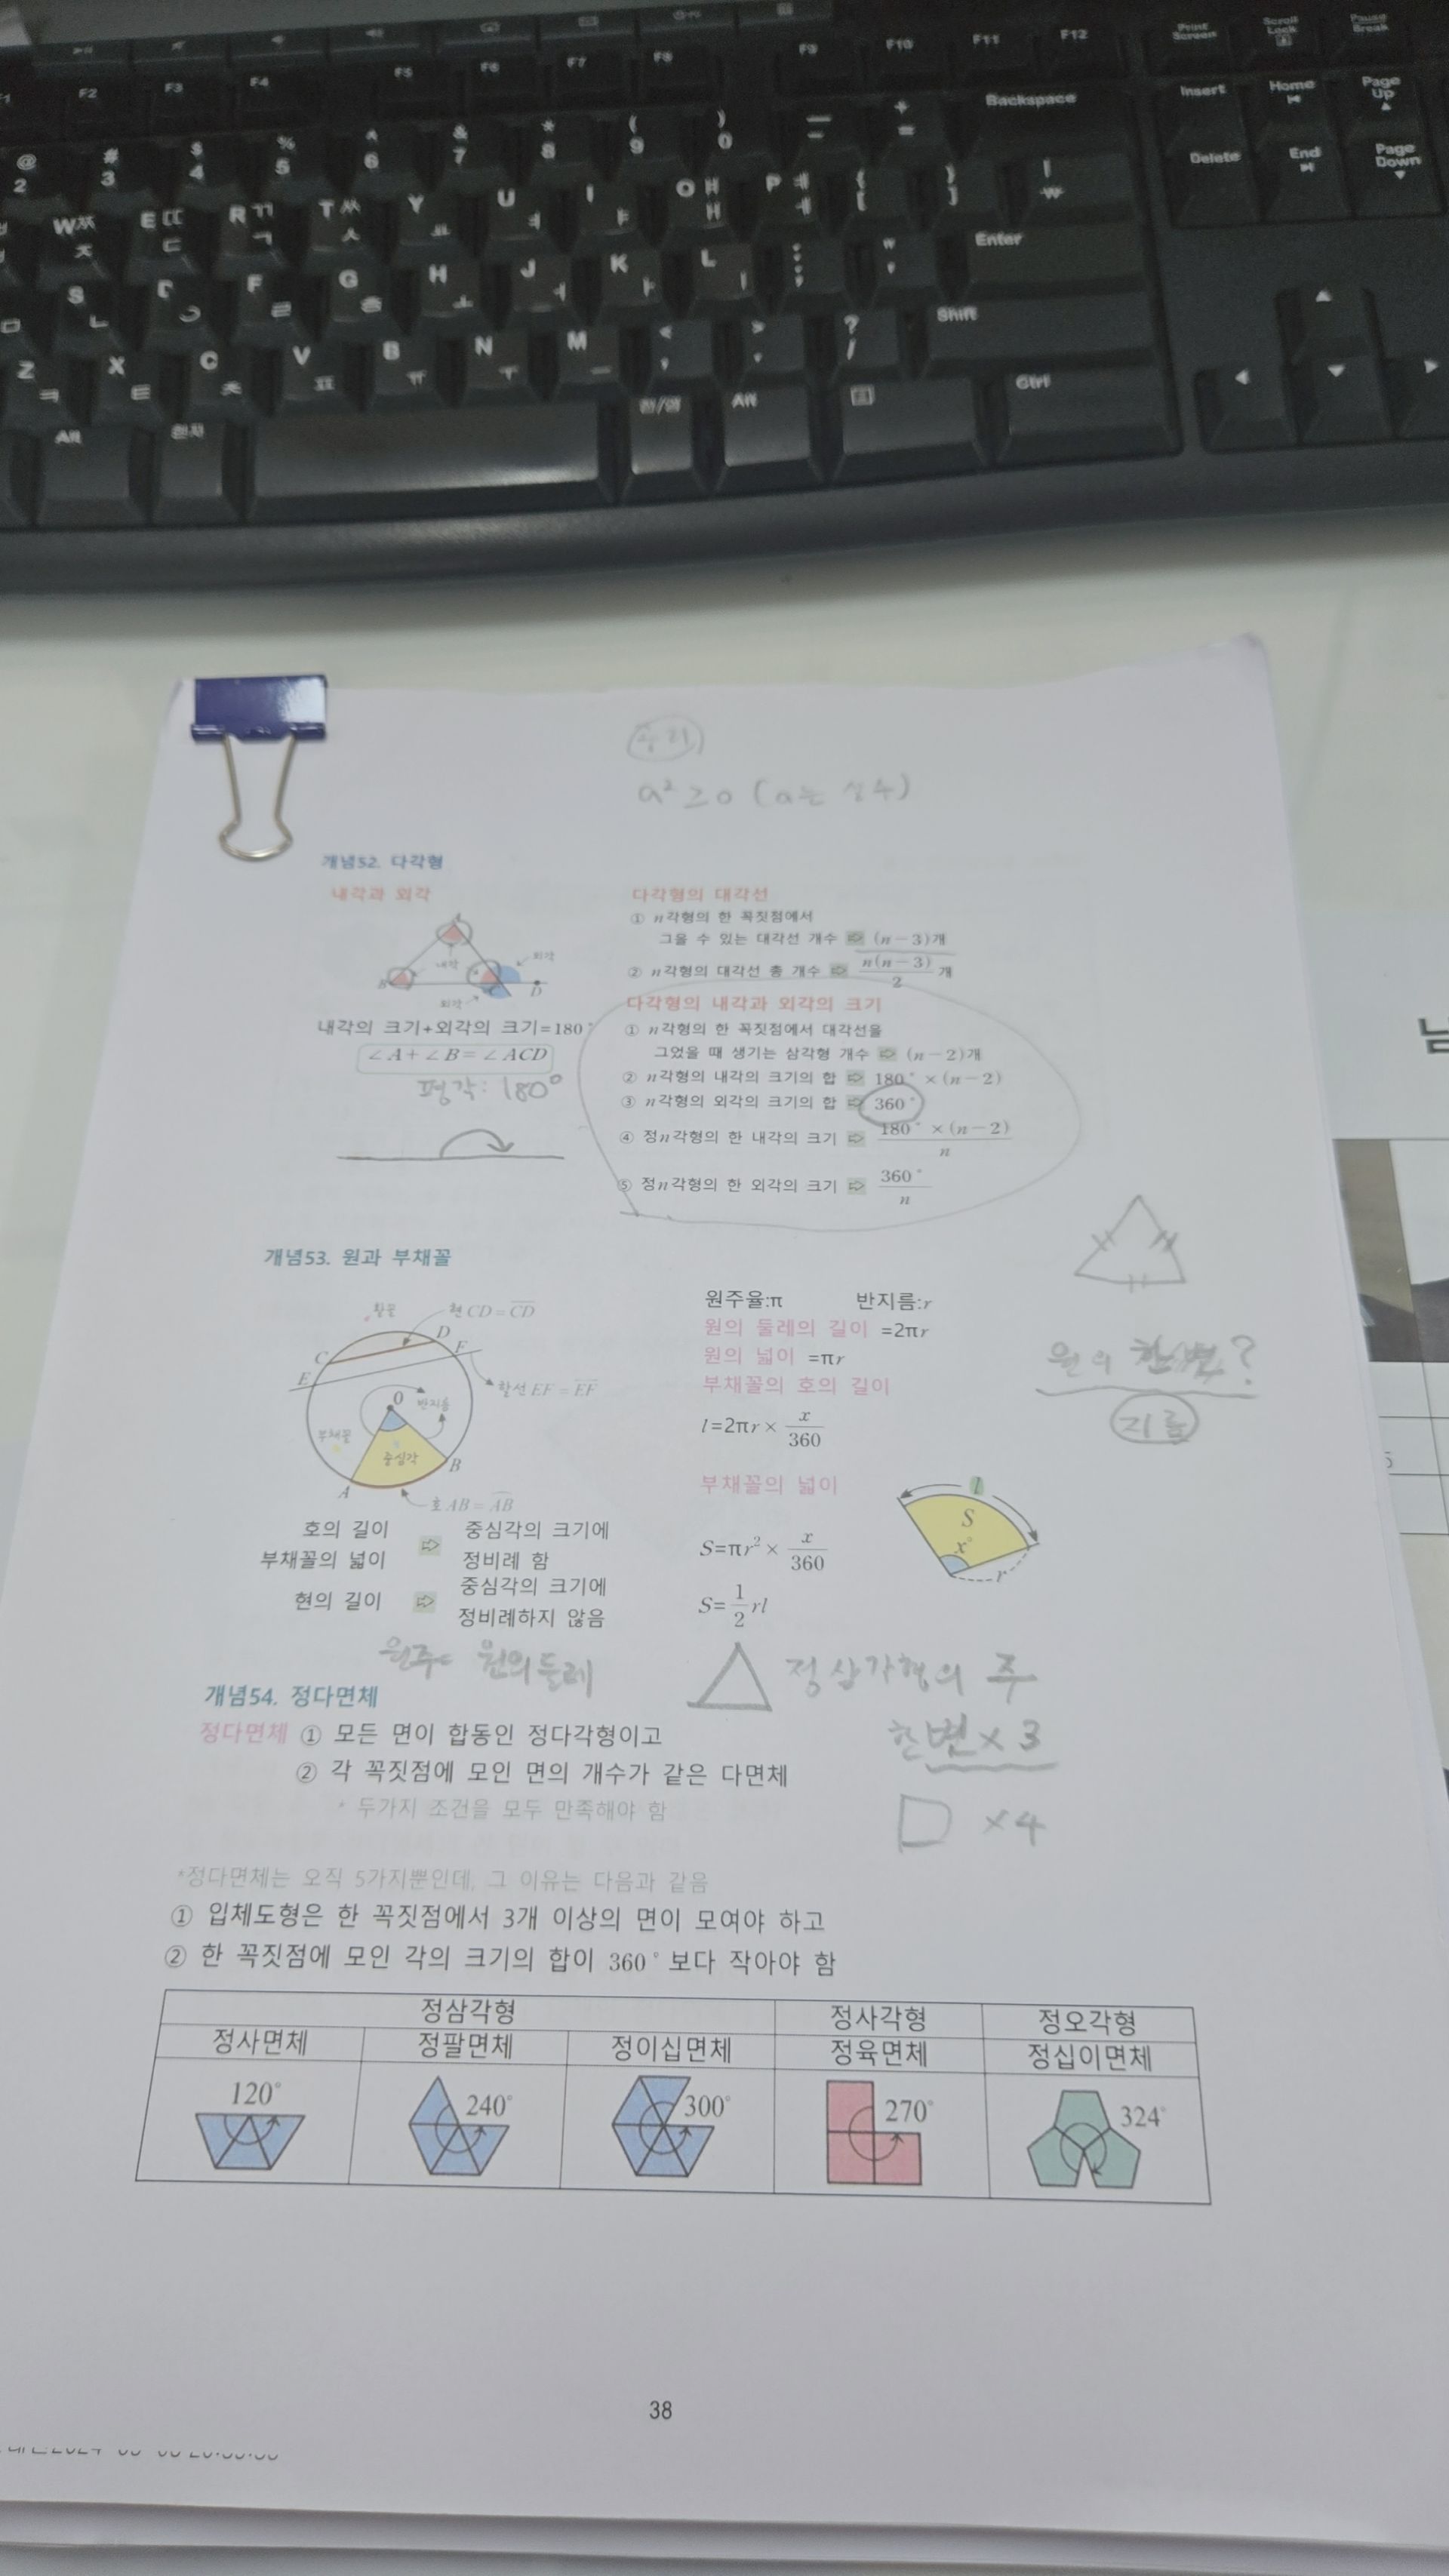 F2 F3 F4 F5 F6 F7 F8 F9 F10 F11 F12 Print Screen Scroll Lock Pause Break
@ 2 # 3 $ 4 % 5 ^ 6 & 7 * 8 ( 9 ) 0 — - + = Backspace Insert Home Page Up
W ㅉ ㅈ E ㄸ ㄷ R ㄲ ㄱ T ㅆ ㅅ Y ㅛ U ㅕ I ㅑ O ㅒ ㅐ P ㅖ ㅔ { [ } ] | ₩ Delete End Page Down
S ㄴ D ㅇ F ㄹ G ㅎ H ㅗ J ㅓ K ㅏ L ㅣ : ; " ' Enter
Z ㅋ X ㅌ C ㅊ V ㅍ B ㅠ N ㅜ M ㅡ < , > . ? / Shift
Alt 한자 한/영 Alt Ctrl
a² ≥ 0 (a는 실수)
개념52. 다각형
내각과 외각
A
내각
외각
B
C
D
외각
내각의 크기+외각의 크기=180°
∠A+∠B=∠ACD
평각: 180°
다각형의 대각선
① n각형의 한 꼭짓점에서
그을 수 있는 대각선 개수 ⇨ (n-3)개
② n각형의 대각선 총 개수 ⇨ n(n-3)/2 개
다각형의 내각과 외각의 크기
① n각형의 한 꼭짓점에서 대각선을
그었을 때 생기는 삼각형 개수 ⇨ (n-2)개
② n각형의 내각의 크기의 합 ⇨ 180°×(n-2)
③ n각형의 외각의 크기의 합 ⇨ 360°
④ 정n각형의 한 내각의 크기 ⇨ 180°×(n-2)/n
⑤ 정n각형의 한 외각의 크기 ⇨ 360°/n
개념53. 원과 부채꼴
활꼴
현 CD=CD
C
D
E
F
할선 EF=EF
O
반지름
부채꼴
중심각
A
B
호 AB=AB
호의 길이
부채꼴의 넓이
⇨
중심각의 크기에
정비례 함
현의 길이
⇨
중심각의 크기에
정비례하지 않음
원주율:π 반지름:r
원의 둘레의 길이 =2πr
원의 넓이 =πr
부채꼴의 호의 길이
l=2πr× x/360
부채꼴의 넓이
S=πr²× x/360
S=1/2 rl
l
S
x°
r
원의 한변?
지름
원주= 원의 둘레
정삼각형의 주
한변×3
×4
개념54. 정다면체
정다면체 ① 모든 면이 합동인 정다각형이고
② 각 꼭짓점에 모인 면의 개수가 같은 다면체
* 두가지 조건을 모두 만족해야 함
*정다면체는 오직 5가지뿐인데, 그 이유는 다음과 같음
① 입체도형은 한 꼭짓점에서 3개 이상의 면이 모여야 하고
② 한 꼭짓점에 모인 각의 크기의 합이 360°보다 작아야 함
정삼각형 정사각형 정오각형
정사면체 정팔면체 정이십면체 정육면체 정십이면체
120° 240° 300° 270° 324°
38